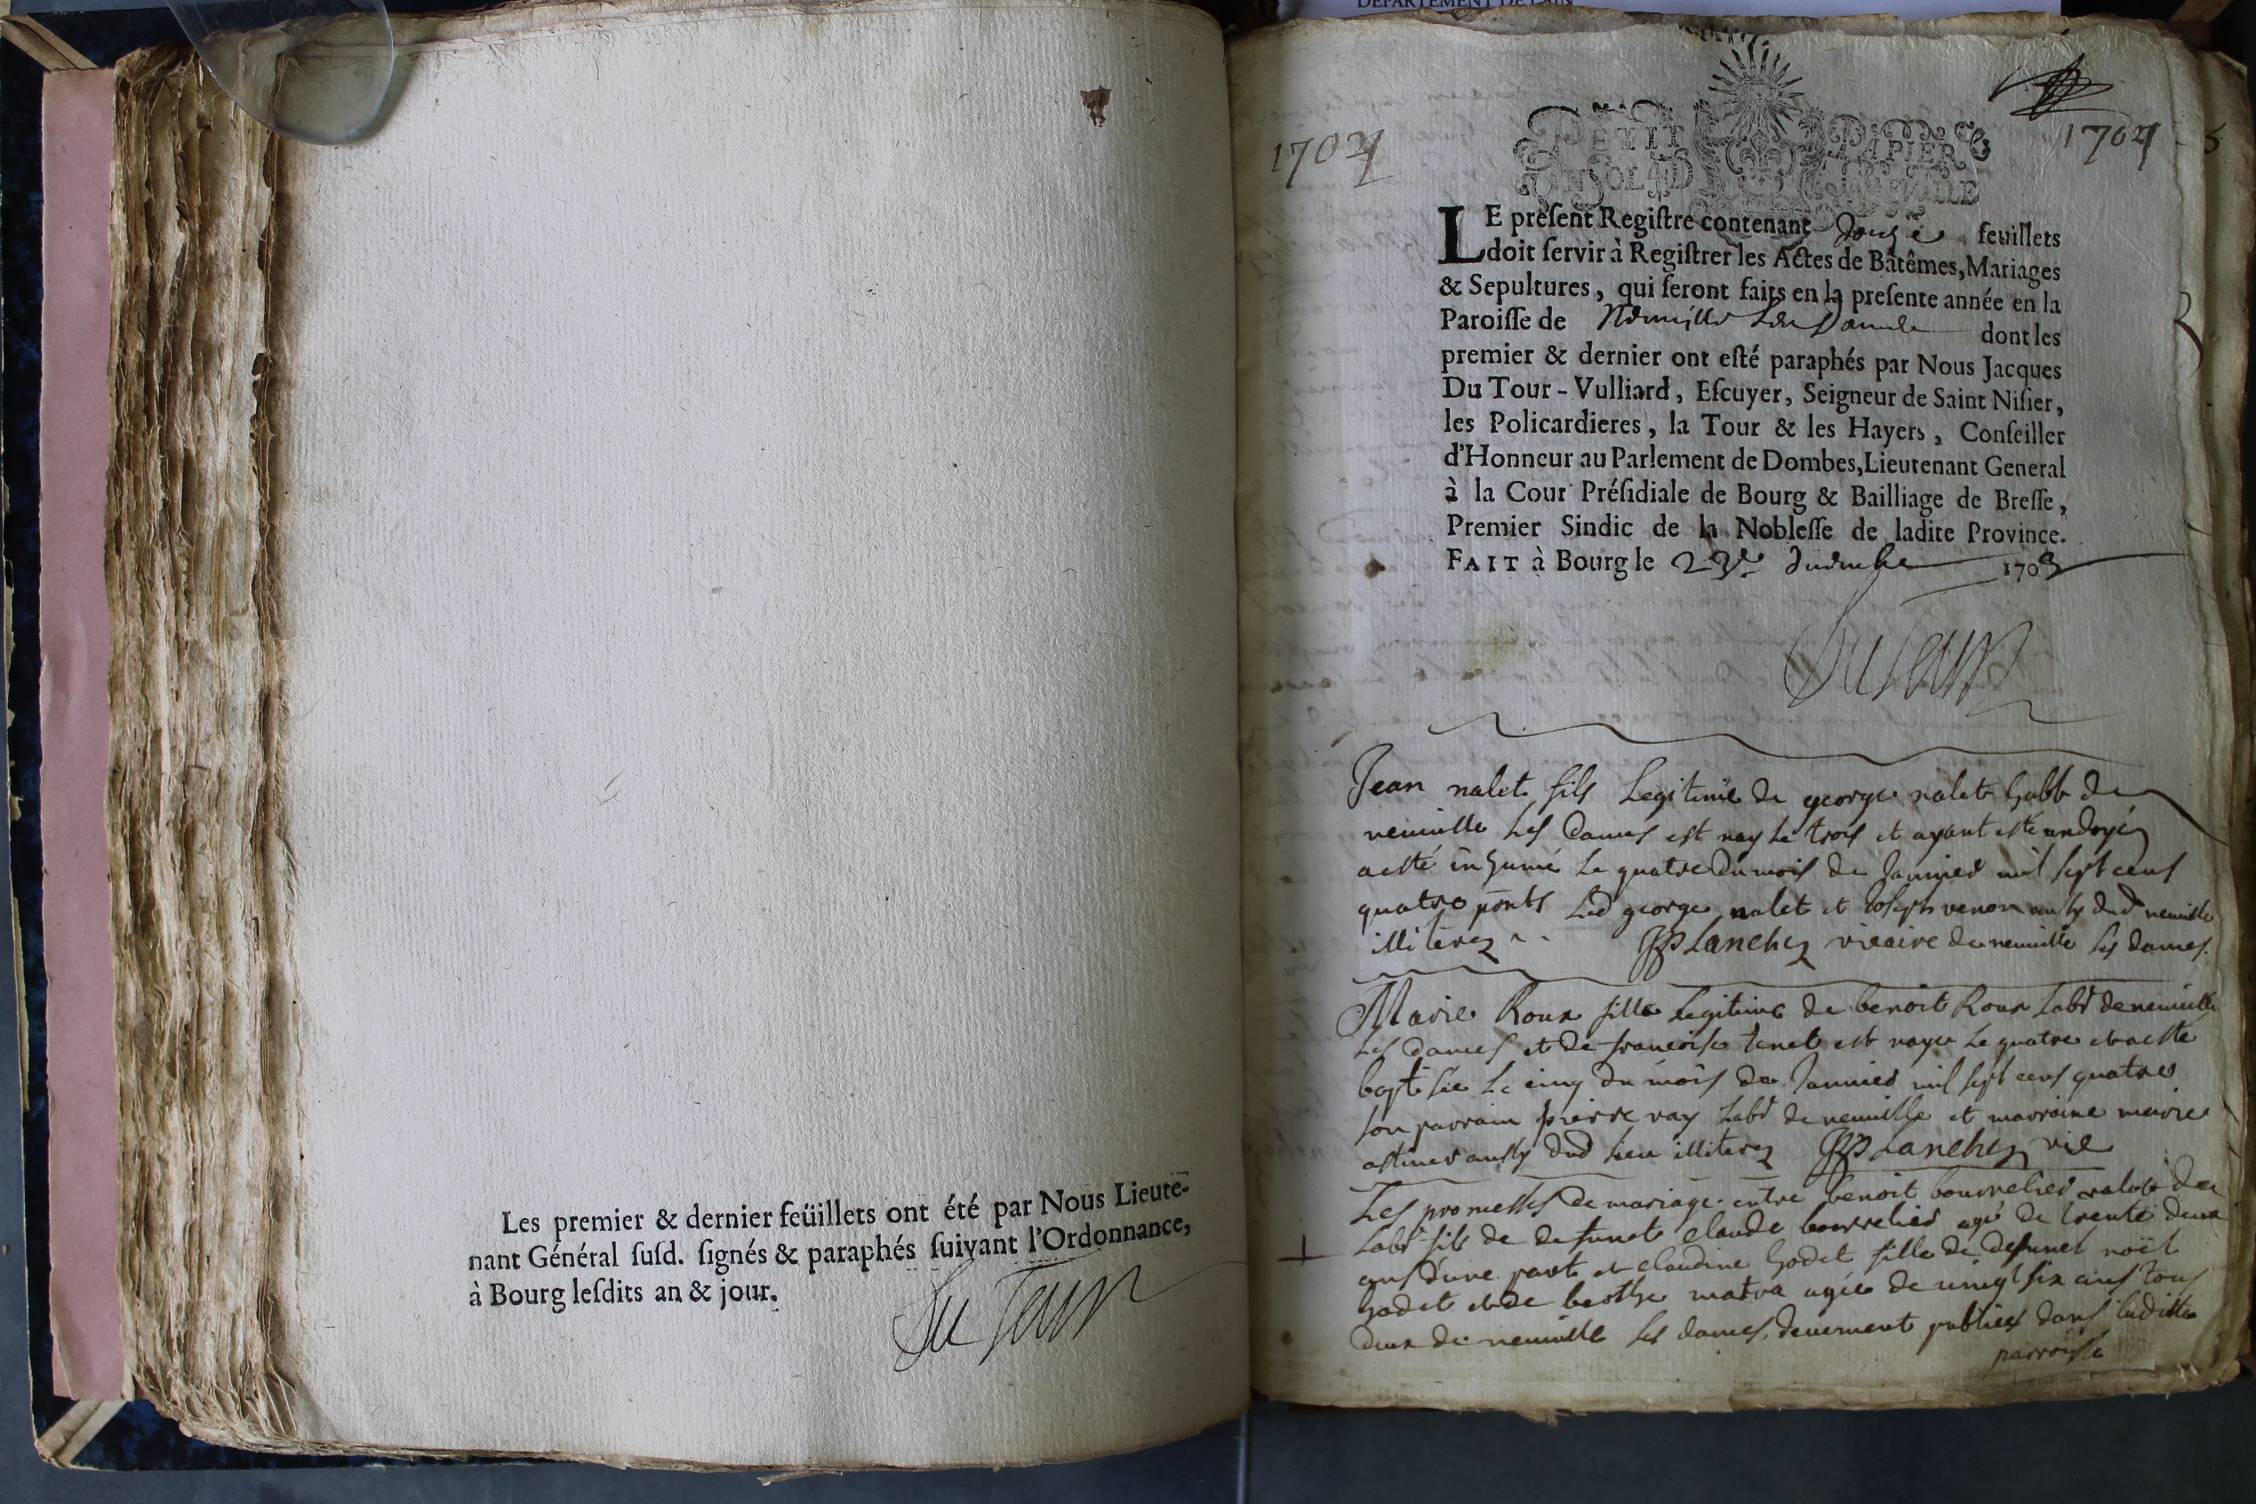 Les premier & dernier feüillets ont été par Nous Lieute-
nant Général ſuſd. ſignés & paraphés ſuivant l'Ordonnance,
à Bourg leſdits an & jour.
Du Tour
DEPARTEMENT DE L'AIN
1704
PETIT PAPIER
UN SOL 4 D LA FEUILLE
1704
LE preſent Regiſtre contenant douze feuillets
doit ſervir à Regiſtrer les Actes de Batêmes, Mariages
& Sepultures, qui ſeront faits en la preſente année en la
Paroiſſe de Neuville Les Dames dont les
premier & dernier ont eſté paraphés par Nous Jacques
Du Tour-Vulliard, Eſcuyer, Seigneur de Saint Niſier,
les Policardieres, la Tour & les Hayers, Conſeiller
d'Honneur au Parlement de Dombes, Lieutenant General
à la Cour Préſidiale de Bourg & Bailliage de Breſſe,
Premier Sindic de la Nobleſſe de ladite Province.
FAIT à Bourg le 23e decembre 1703
Du Tour
Jean nalet fils Legitime de george nalet habt de
neuville Les Dames est nay Le trois et ayant esté ondoyé
a esté inhumé Le quatre du mois de Janvier mil sept cens
quatre pñts Led george nalet et Joseph venon aussy dud neuville
illiterez JPLanchez vicaire de neuville les dames.
Marie Roux fille Legitime de benoit Roux Labr de neuville
Les dames et de francoise tenet est nayee Le quatre et a esté
baptisée Le cinq du mois de Janvier mil sept cens quatre
son parrain pierre ray Labr de neuville et marraine marie
aussy dud Lieu illiterez JPLanchez vic
Les promesses de mariage entre benoit bourrelier valet de
Labr fils de defunct claude bourrelier agé de trente deux
ans d'une part et claudine godet fille de defunct noël
godet et de berthe matra agée de vingt six ans tous
deux de neuville les dames, deuement publiées dans laditte
parroisse